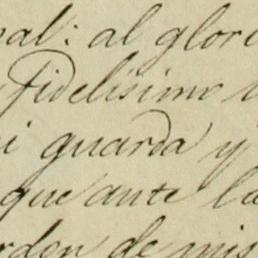 al: al glori
fidelisimo
i guarda y
que ante la
orden de mis